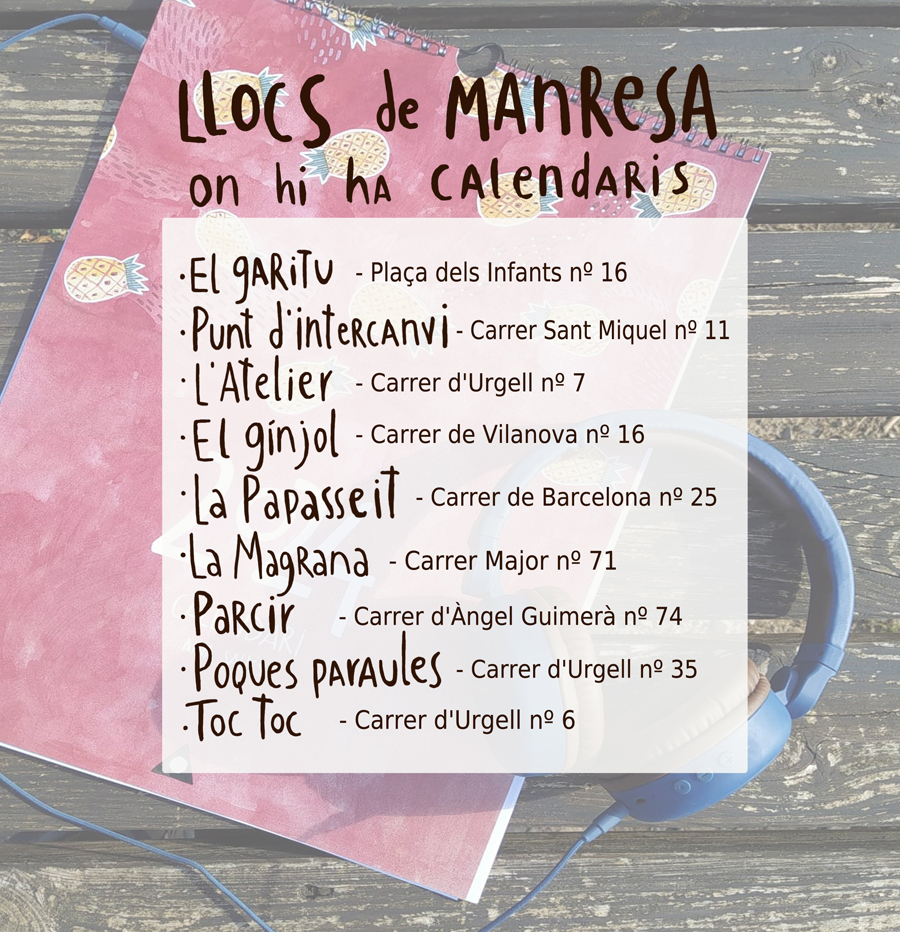 LLOCS de MANRESA
on hi ha CALENDARIS
·El gARITU - Plaça dels Infants nº 16
·Punt d'intercanvi - Carrer Sant Miquel nº 11
·L'Atelier - Carrer d'Urgell nº 7
·El gínjol - Carrer de Vilanova nº 16
·La Papasseit - Carrer de Barcelona nº 25
·La Magrana - Carrer Major nº 71
·Parcir - Carrer d'Àngel Guimerà nº 74
·Poques paraules - Carrer d'Urgell nº 35
·Toc Toc - Carrer d'Urgell nº 6